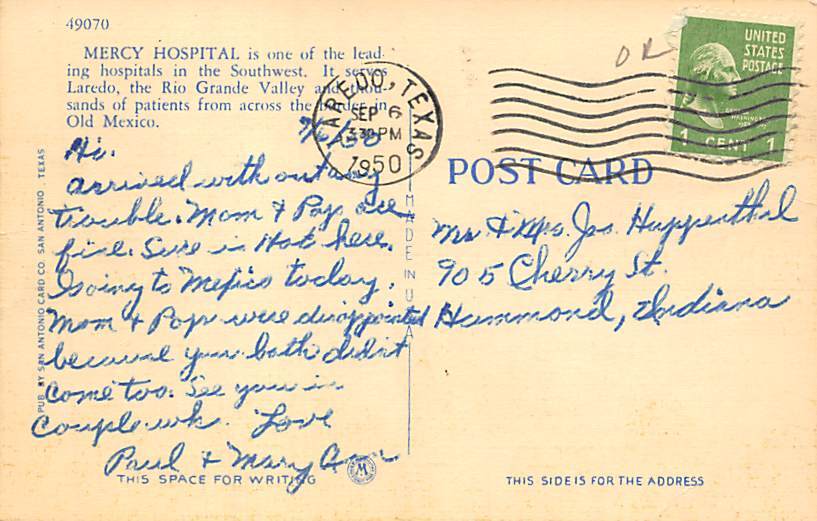 49070
MERCY HOSPITAL is one of the lead-
ing hospitals in the Southwest. It serves
Laredo, the Rio Grande Valley and thou-
sands of patients from across the border in
Old Mexico.
LAREDO, TEXAS
SEP 6
3:30 PM
1950
UNITED
STATES
POSTAGE
1 CENT 1
OR
Hi.
arrived without any
trouble. Mom & Pop are
fine. Sure is Hot here.
Going to Mexico today.
Mom & Pop were disappointed
because you both didn't
come too. See you in
couple wks. Love
Paul & Mary Ann
POST CARD
Mr & Mrs. Jos. Huppenthal
905 Cherry St.
Hammond, Indiana
PUB. BY SAN ANTONIO CARD CO. SAN ANTONIO, TEXAS
MADE IN U.S.A.
THIS SPACE FOR WRITING
THIS SIDE IS FOR THE ADDRESS